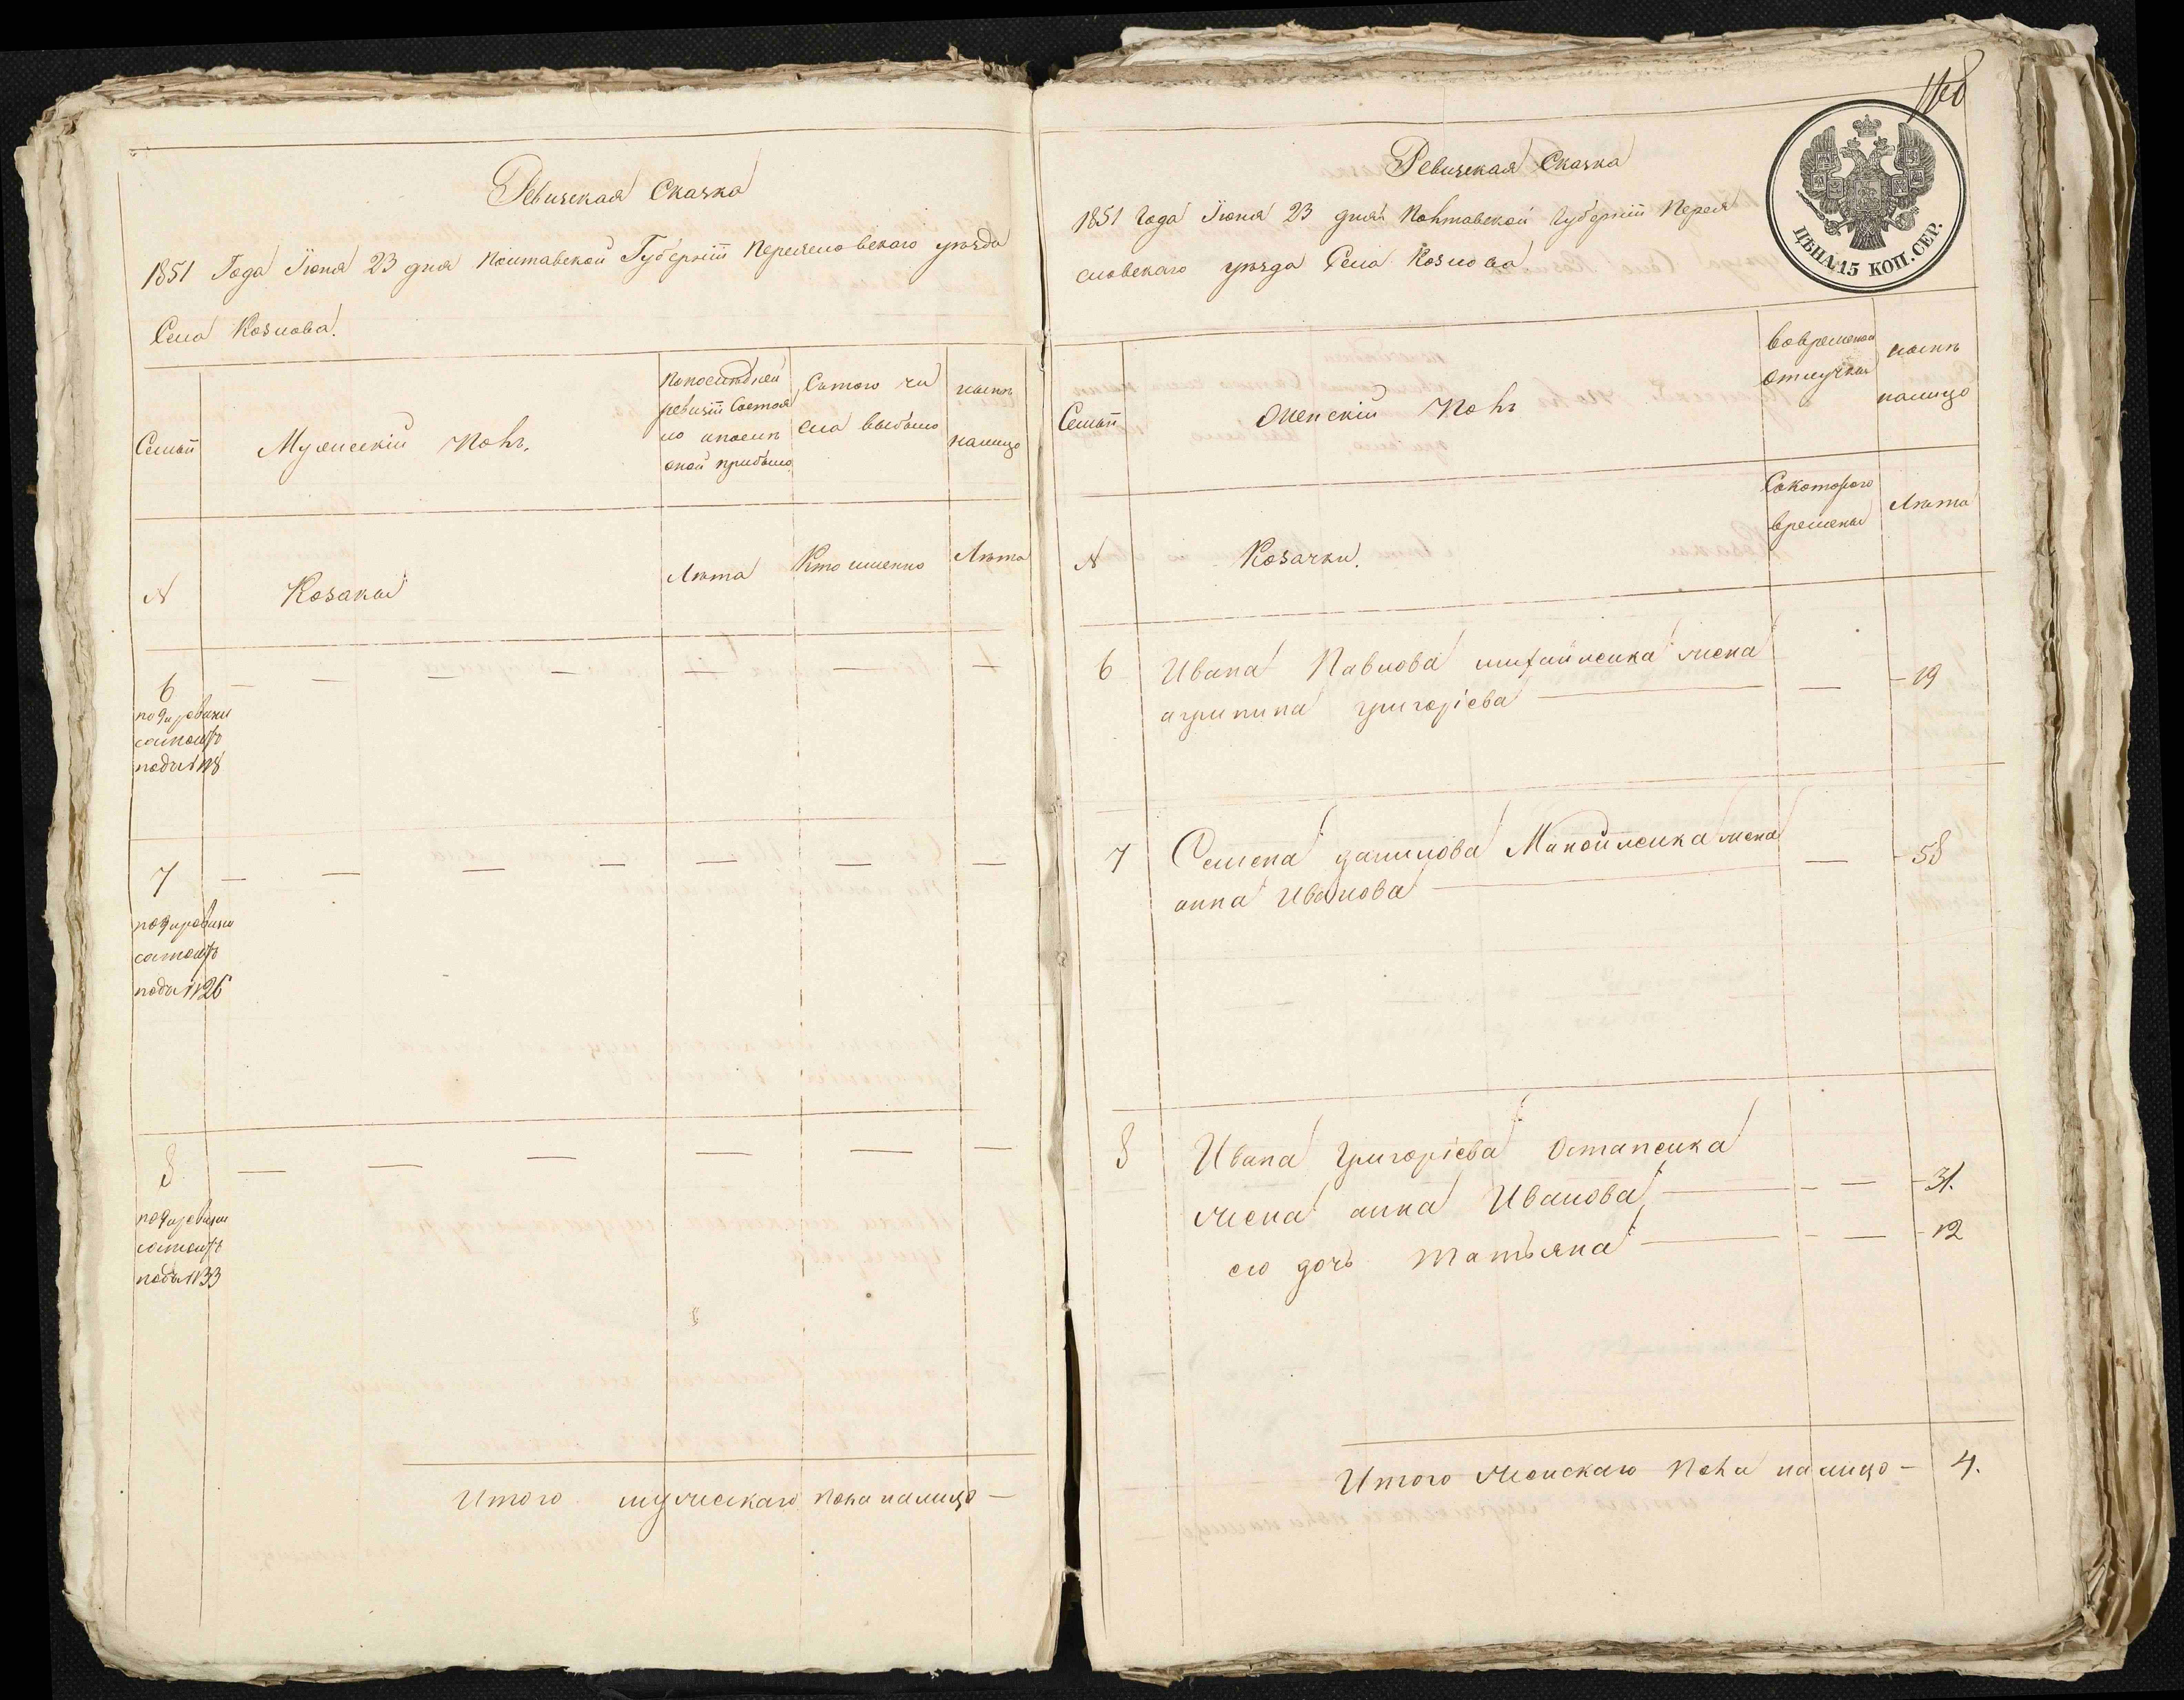 Ревизская Сказка
1851 Года Июня 23 дня Полтавской Губернии Переясловского уезда
Села Козлова.
Семьи
Мужеский Полъ.
Попоследней
ревизіи Состоя
ло ипосли
оной прибыло
Сътого чи
сла выбыло
ныне
налицо
N
Козаки
Лѣта
Кто именно
Лѣта
6
поди ревизии
подъ N 118
7
поди ревизии
подъ N 126
8
поди ревизии
подъ N 133
Итого мужескаго пола налицо —
168
Ревизская Сказка
1851 Года Июня 23 дня Полтавской Губерніи Перея
словскаго уезда Села Козлова
ЦѢНА 15 КОП. СЕР.
Семьи
Женскій Полъ
Вовременной
отлучки
ныне
налицо
N
Козачки.
Скоторого
времени
Лѣта
6 Ивана Павлова михайленка жена
агрипина григоріева — — 19
7 Семена данилова Манойленка жена — 58
анна Иванова —
8 Ивана Григоріева Остапенка
жена анна Иванова — — 31.
его дочь татьяна — — 12
Итого женскаго пола налицо — 4.